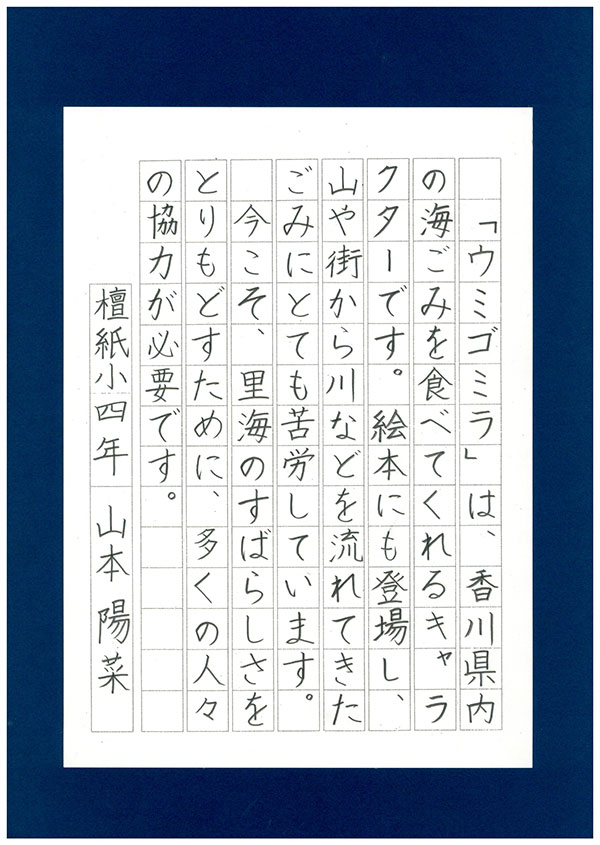 「ウミゴミラ」は、香川県内
の海ごみを食べてくれるキャラ
クターです。絵本にも登場し、
山や街から川などを流れてきた
ごみにとても苦労しています。
今こそ、里海のすばらしさを
とりもどすために、多くの人々
の協力が必要です。
檀紙小四年 山本陽菜